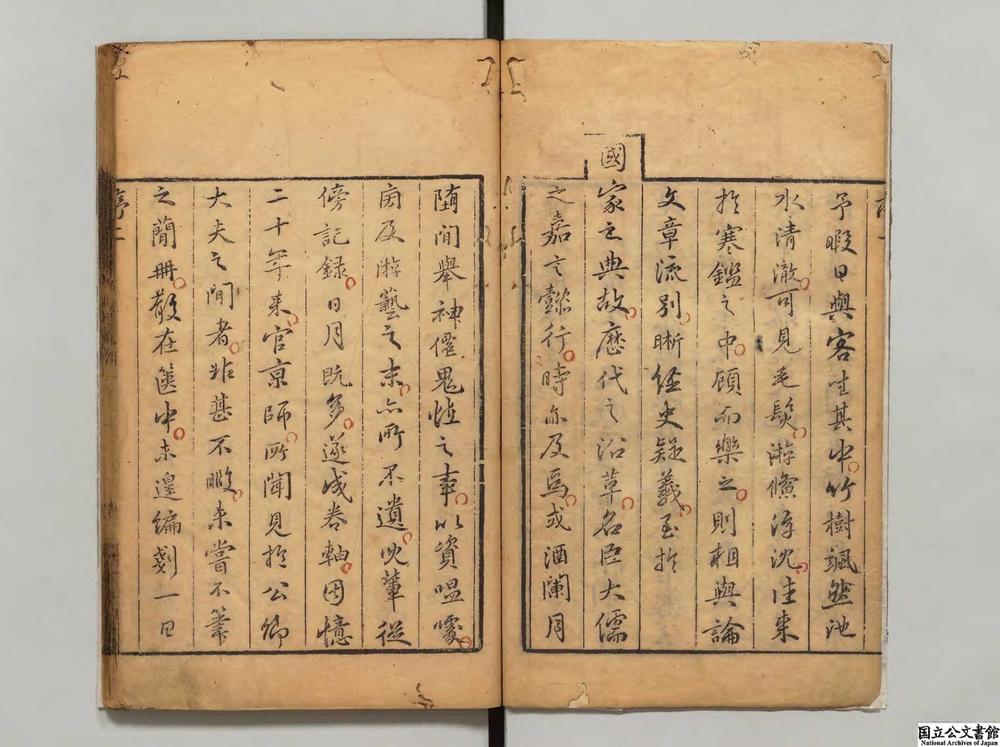 予暇日與客坐其中。竹樹颯然池
水清澈。可見毛髮。游鯈浮沈。往來
於寒鑑之中。顧而樂之。則相與論
文章流別。晰經史疑義。至於
國家之典故。歷代之沿革。名臣大儒
之嘉言懿行。時亦及焉。或酒闌月
墮間舉神僊鬼怪之事。以資嗢噱。
旁及游藝之末。亦所不遺。兒輩從
傍記錄。日月既多。遂成卷軸。因憶
二十年來。官京師。所聞見於公卿
大夫之間者。非甚不暇。未嘗不筆
之簡冊。散在篋中。未遑編剗一日
序二
国立公文書館
National Archives of Japan